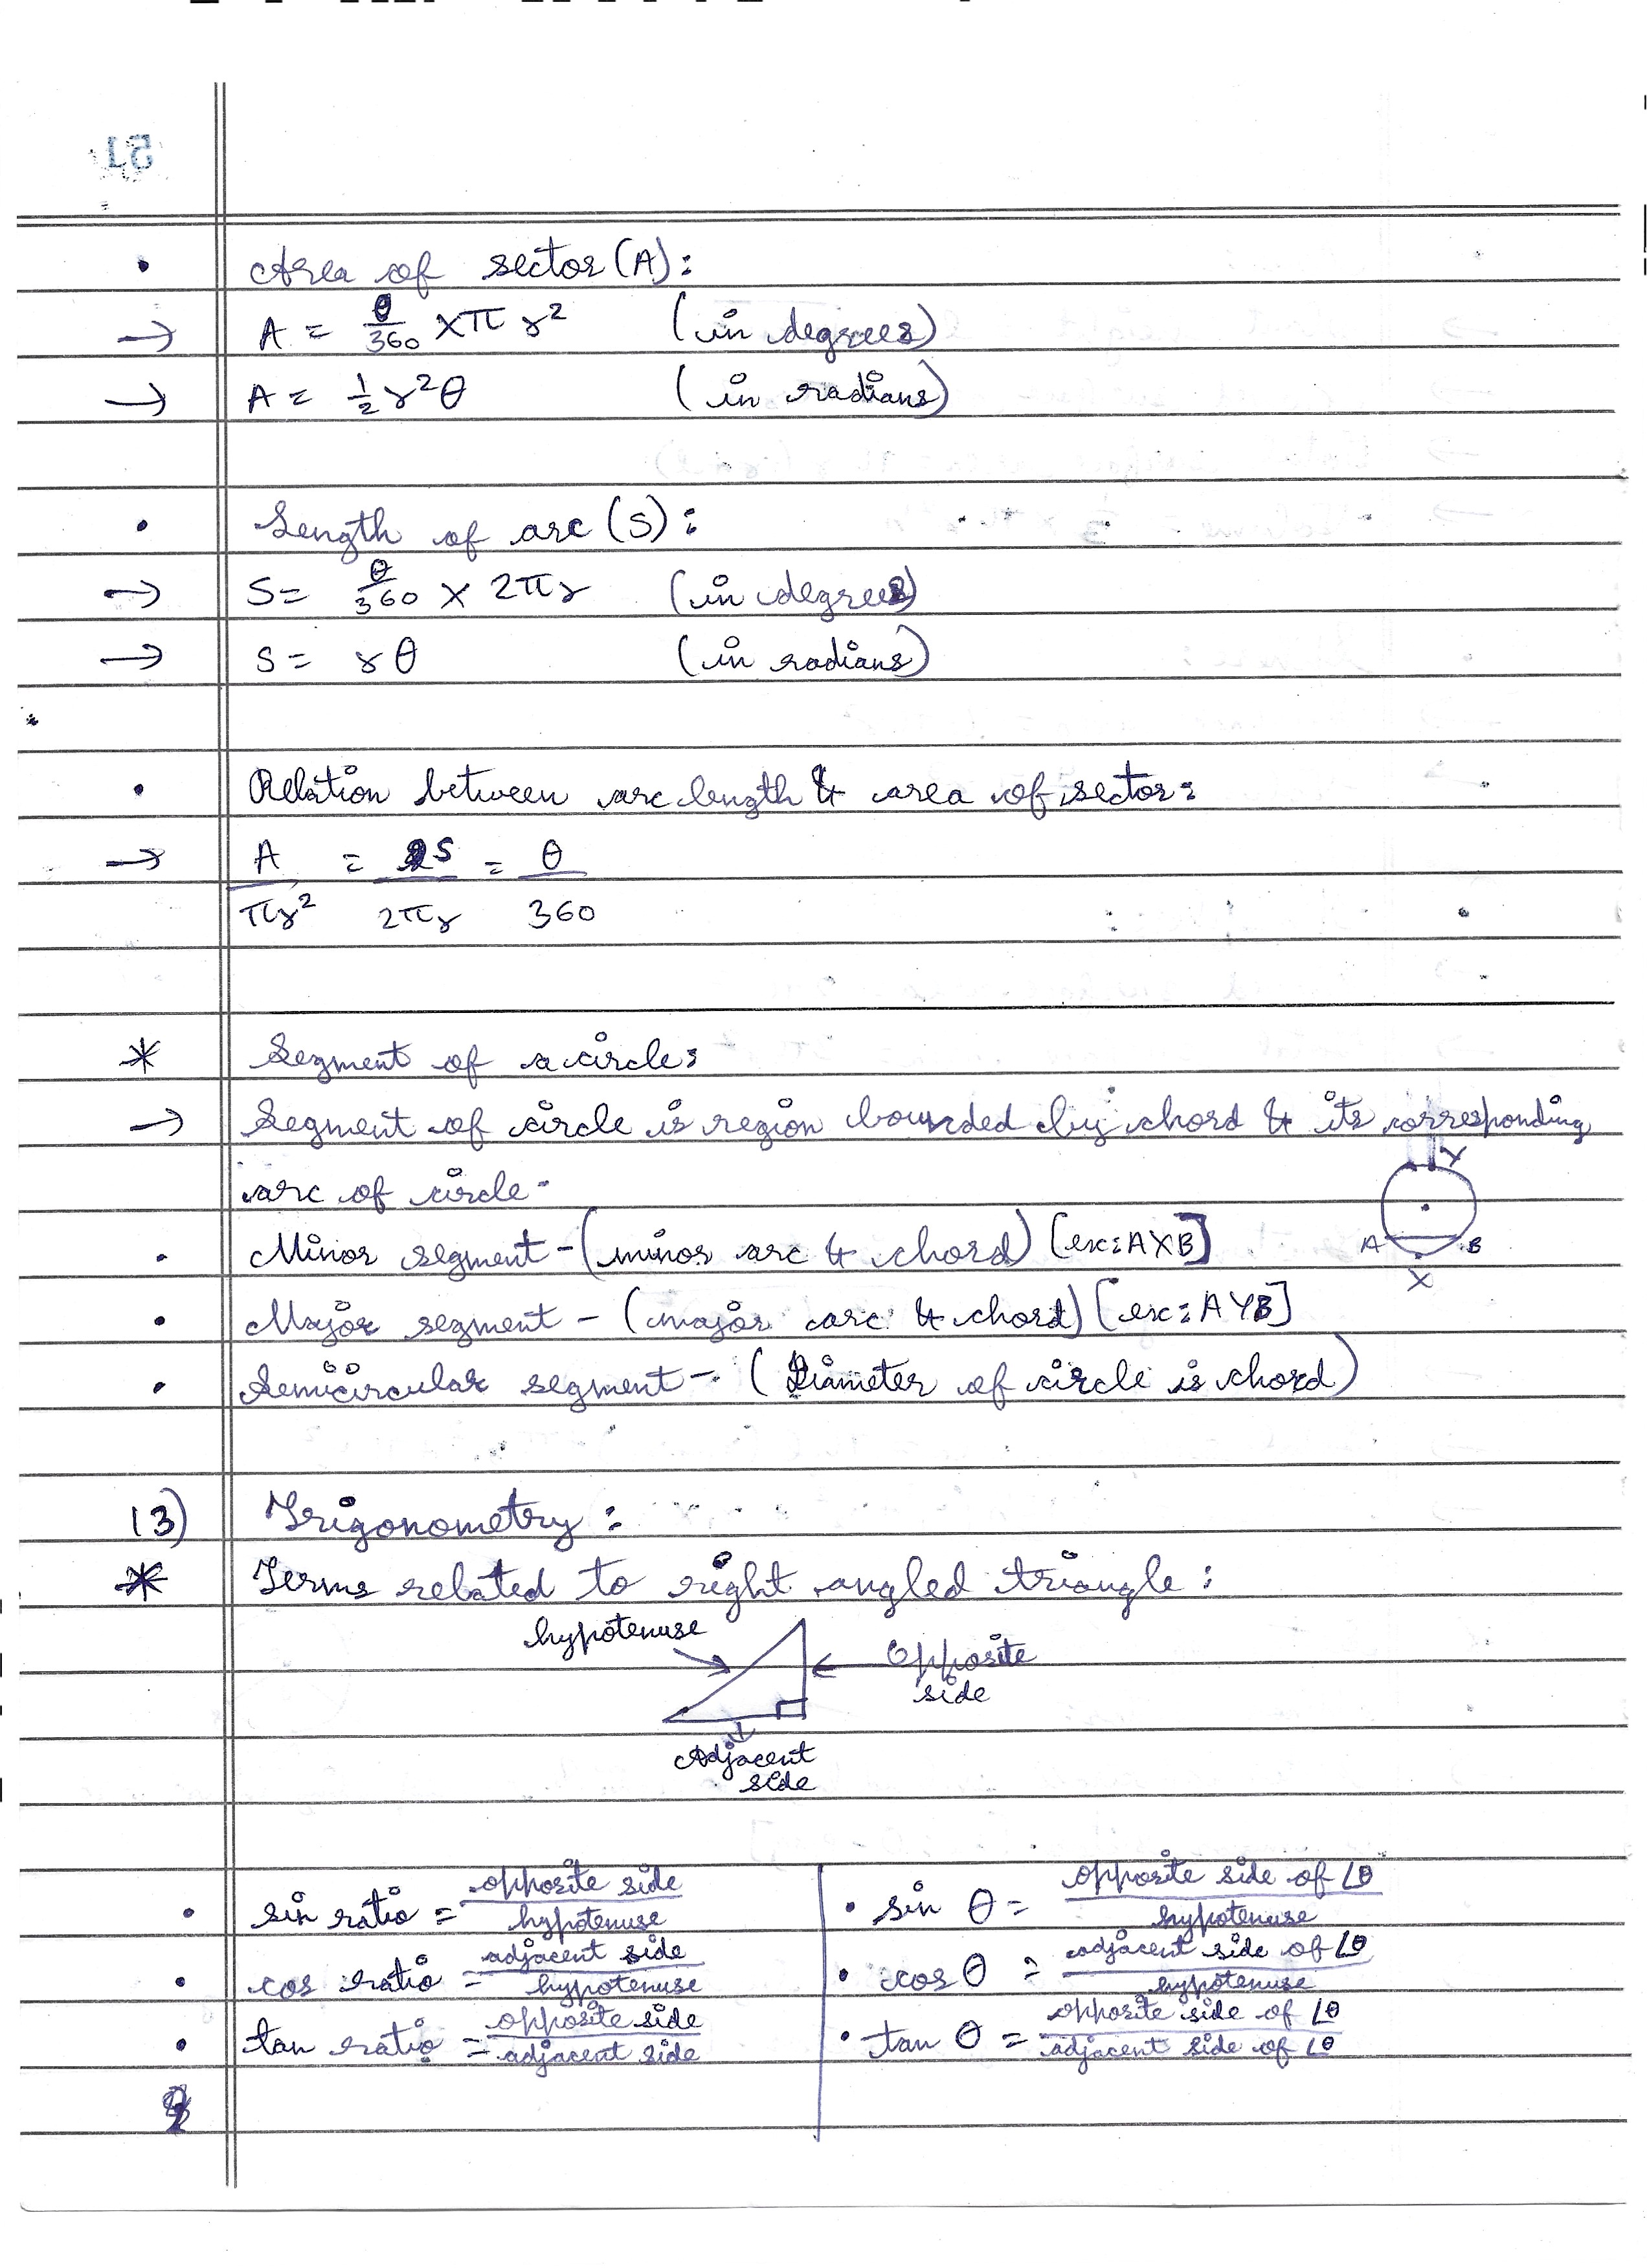 51
• Area of sector (A):
→ A = θ/360 × π r² (in degrees)
→ A = 1/2 r²θ (in radians)
• Length of arc (S):
→ S = θ/360 × 2πr (in degrees)
→ S = rθ (in radians)
• Relation between arc length & area of sector:
→ A/πr² = S/2πr = θ/360
* Segment of a circle:
→ Segment of circle is region bounded by chord & its corresponding
arc of circle.
Y
A B
X
• Minor segment - (minor arc & chord) [ex: AXB]
• Major segment - (major arc & chord) [ex: AYB]
• Semicircular segment - (Diameter of circle is chord)
13) Trigonometry:
* Terms related to right angled triangle:
hypotenuse
Opposite
side
Adjacent
side
• sin ratio = opposite side/hypotenuse • sin θ = opposite side of ∠θ/hypotenuse
• cos ratio = adjacent side/hypotenuse • cos θ = adjacent side of ∠θ/hypotenuse
• tan ratio = opposite side/adjacent side • tan θ = opposite side of ∠θ/adjacent side of ∠θ